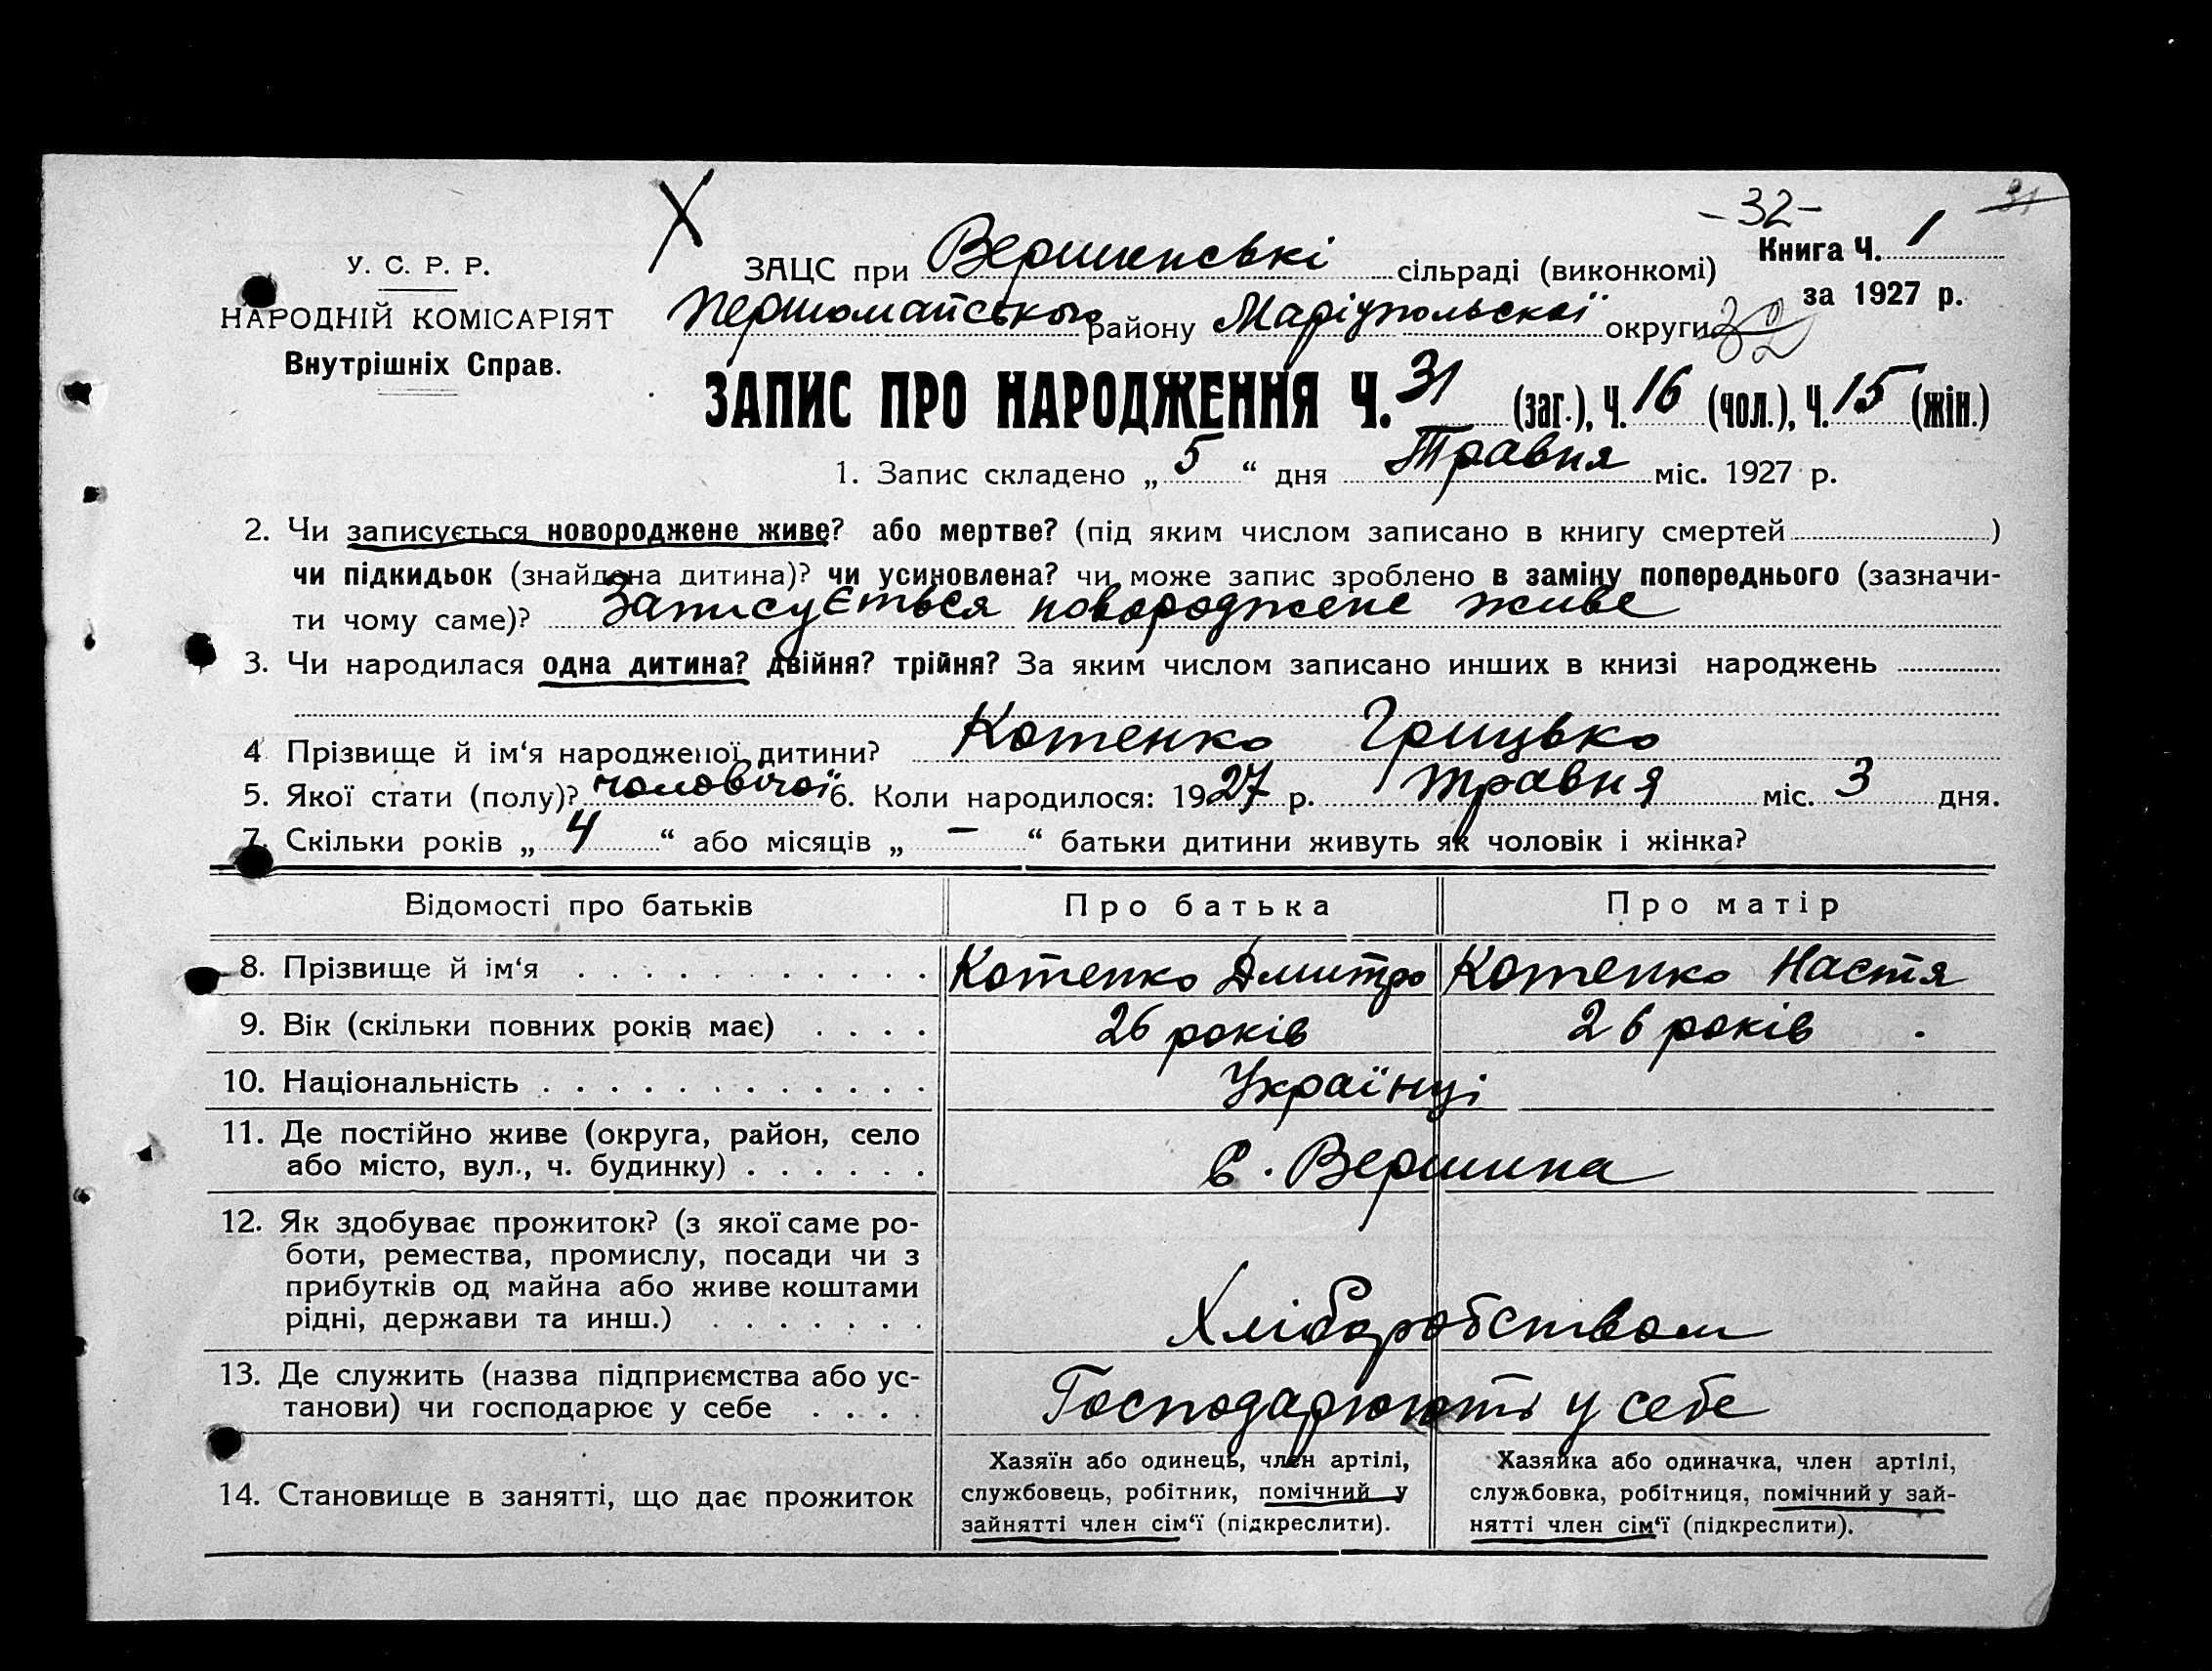 31
- 32 -
Книга Ч. 1
за 1927 р.
У. С. Р. Р.
НАРОДНІЙ КОМІСАРІЯТ
Внутрішніх Справ.
X
ЗАЦС при Вершинські сільраді (виконкомі)
Першомайського району Маріупольскої округи 32
ЗАПИС ПРО НАРОДЖЕННЯ Ч. 31 (заг.), Ч. 16 (чол.), Ч. 15 (жін.)
1. Запис складено „ 5 “ дня Травня міс. 1927 р.
2. Чи записується новороджене живе? або мертве? (під яким числом записано в книгу смертей )
чи підкидьок (знайдена дитина)? чи усиновлена? чи може запис зроблено в заміну попереднього (зазначи-
ти чому саме)? Записується новороджене живе
3. Чи народилася одна дитина? двійня? трійня? За яким числом записано инших в книзі народжень
4 Прізвище й ім‘я народженої дитини? Котенко Грицько
5. Якої стати (полу)? чоловічої 6. Коли народилося: 1927 р. травня міс. 3 дня.
7. Скільки років „ 4 “ або місяців „ — “ батьки дитини живуть як чоловік і жінка?
Відомості про батьків Про батька Про матір
8. Прізвище й ім‘я Котенко Дмитро Котенко Настя
9. Вік (скільки повних років має) 26 років 26 років
10. Національність Українці
11. Де постійно живе (округа, район, село
або місто, вул., ч. будинку) с. Вершина
12. Як здобуває прожиток? (з якої саме ро-
боти, ремества, промислу, посади чи з
прибутків од майна або живе коштами
рідні, держави та инш.) Хліборобством
13. Де служить (назва підприємства або ус-
танови) чи господарює у себе Господарюють у себе
14. Становище в занятті, що дає прожиток
Хазяїн або одинець, член артілі,
службовець, робітник, помічний у
зайнятті член сім‘ї (підкреслити).
Хазяйка або одиначка, член артілі,
службовка, робітниця, помічний у зай-
нятті член сім‘ї (підкреслити).